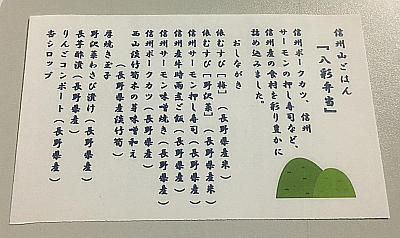 信州山ごはん
『八彩弁当』
信州ポークカツ、信州
サーモンの押し寿司など、
信州産の食材を彩り豊かに
詰め込みました。
おしながき
俵むすび「梅」（長野県産米）
俵むすび「野沢菜」（長野県産米）
信州サーモン押し寿司（長野県産）
信州産牛時雨煮ご飯（長野県産）
信州サーモン味噌焼き（長野県産）
信州ポークカツ（長野県産）
西山淡竹筍木の芽味噌和え
（長野県産淡竹筍）
厚焼き玉子
野沢菜わさび漬け（長野県産）
長芋酢漬（長野県産）
りんごコンポート（長野県産）
杏シロップ